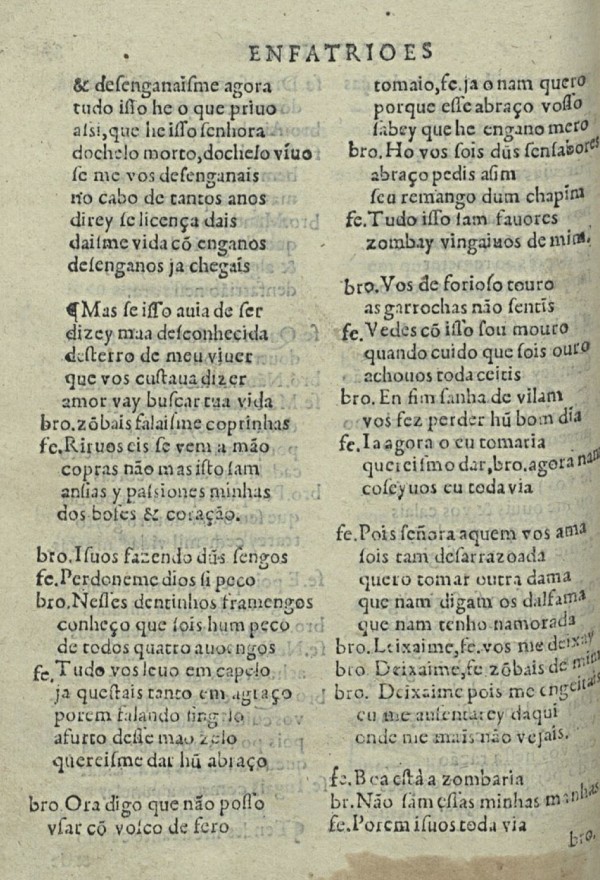 ENFATRIOES
& desenganaisme agora
tudo isso he o que priuo
assi,que he isso senhora
dochelo morto,dochelo viuo
se me vos desenganais
no cabo de tantos anos
direy se licença dais
daisme vida cõ enganos
desenganos ja chegais
¶Mas se isso auia de ser
dizey maa desconhecida
desterro de meu viuer
que vos custaua dizer
amor vay buscar tua vida
bro.zõbais falaisme coprinhas
fe.Rituos eis se vem a mão
copras não mas isto sam
ansias y passiones minhas
dos bofes & coração.
bro.Isuos fazendo dũs sengos
fe.Perdoneme dios si peco
bro.Nesses dentinhos framengos
conheço que sois hum peco
de todos quatro auoengos
fe.Tudo vos leuo em capelo
ja questais tanto em agraço
porem falando singelo
afurto desse mao zelo
quereisme dar hũ abraço
bro.Ora digo que não posso
vsar cõ vosco de fero
tomaio,fe.ja o nam quero
porque esse abraço vosso
sabey que he engano mero
bro.Ho vos sois dũs sensabores
abraço pedis asim
seu remango dum chapim
fe.Tudo isso sam fauores
zombay vingaiuos de mim.
bro.Vos de forioso touro
as garrochas não sentis
fe.Vedes cõ isso sou mouro
quando cuido que sois ouro
achouos toda ceitis
bro.En fim sanha de vilam
vos fez perder hũ bom dia
fe.Ia agora o eu tomaria
quereismo dar,bro.agora nam
coseyuos eu toda via
fe.Pois señora aquem vos ama
sois tam desarrazoada
quero tomar outra dama
que nam digam os dalfama
que nam tenho namorada
bro.Leixaime,fe.vos me deixay
bro. Deixaime,fe zõbais de mim
bro. Deixaime pois me engeitais
eu me ausentarey daqui
onde me mais não vejais.
fe.Boa está a zombaria
br.Não sam essas minhas manhas
fe.Porem isuos toda via
bro.